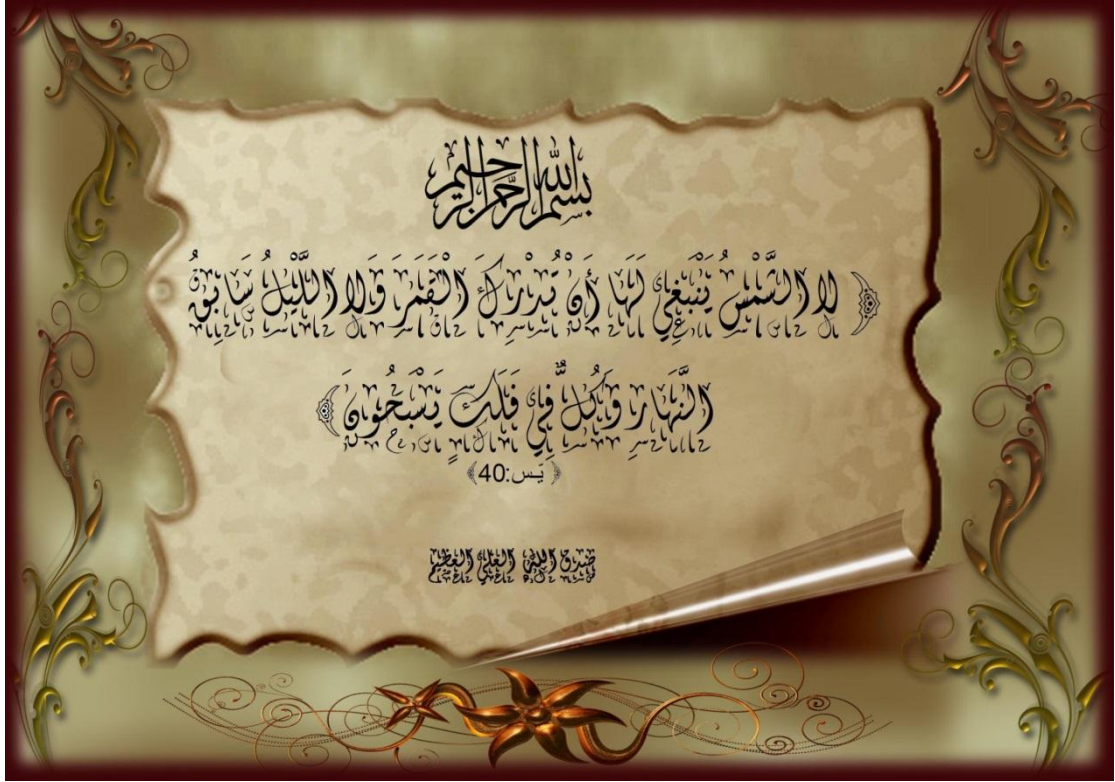 بسم الله الرحمن الرحيم
﴿ لا الشَّمْسُ يَنْبَغِي لَهَا أَنْ تُدْرِكَ الْقَمَرَ وَلا اللَّيْلُ سَابِقُ
النَّهَارِ وَكُلٌّ فِي فَلَكٍ يَسْبَحُونَ ﴾
﴿ يّس:40﴾
صدق الله العلي العظيم